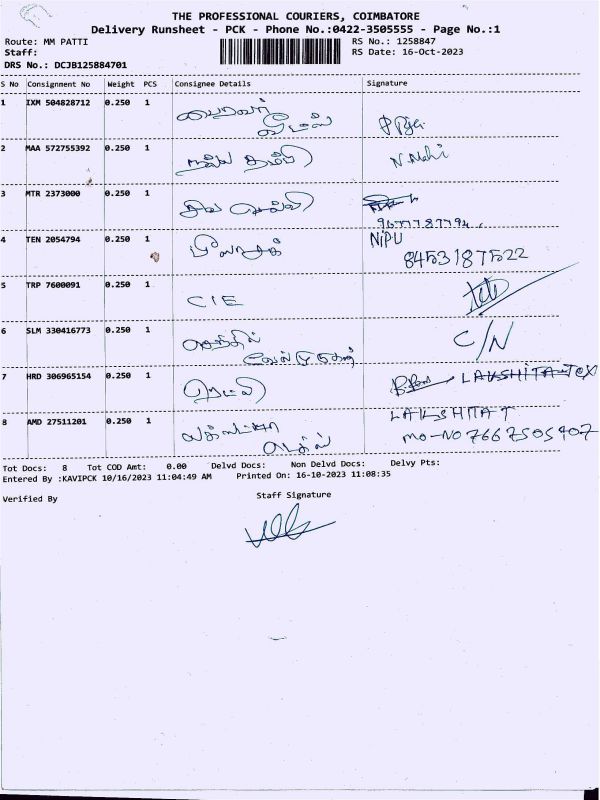 THE PROFESSIONAL COURIERS, COIMBATORE
Delivery Runsheet - PCK - Phone No.:0422-3505555 - Page No.:1
Route: MM PATTI RS No.: 1258847
Staff: RS Date: 16-Oct-2023
DRS No.: DCJB125884701
S No Consignment No Weight PCS Consignee Details Signature
1 IXM 504828712 0.250 1
2 MAA 572755392 0.250 1 நல்ல தம்பி N. Mani
3 MTR 2373000 0.250 1 சிவ செல்வி
9677787794
4 TEN 2054794 0.250 1 NiPU
8453187522
5 TRP 7600091 0.250 1 CIE
6 SLM 330416773 0.250 1 செந்தில் C/N
வேல் முருகன்
7 HRD 306965154 0.250 1 ரெட்டி LAKSHITA TEX
8 AMD 27511201 0.250 1 LAKSHITA T
mo-No 7667505907
Tot Docs: 8 Tot COD Amt: 0.00 Delvd Docs: Non Delvd Docs: Delvy Pts:
Entered By :KAVIPCK 10/16/2023 11:04:49 AM Printed On: 16-10-2023 11:08:35
Verified By Staff Signature